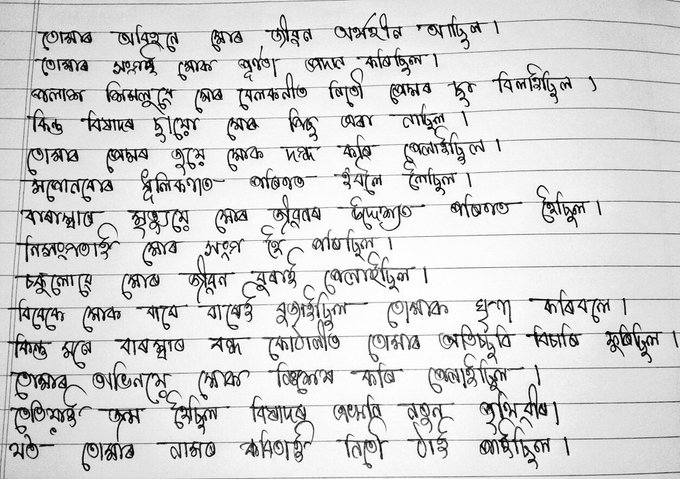 তোমাৰ অবিহনে মোৰ জীৱন অৰ্থহীন আছিল।
তোমাৰ সংগই মোক পূৰ্ণতা প্ৰদান কৰিছিল।
পলাশ শিমলুৱে মোৰ বেলকনীত নিতৌ প্ৰেমৰ ছন্দ বিলাইছিল।
কিন্তু বিষাদৰ ছায়াই মোৰ পিছু এৰা নাছিল।
তোমাৰ প্ৰেমৰ জুয়ে মোক দগ্ধ কৰি পেলাইছিল।
সপোনবোৰ ধূলিকণাত পৰিণত হবলৈ লৈছিল।
বাৰম্বাৰ মৃত্যুয়ে মোৰ জীৱনৰ উদ্দেশ্যত পৰিণত হৈছিল।
নিসংগতাই মোৰ সংগ হৈ পৰিছিল।
চকুলোৱে মোৰ জীৱন বুৰাই পেলাইছিল।
বিবেকে মোক বাৰে বাৰেই বুজাইছিল তোমাক ঘৃণা কৰিবলে।
কিন্তু মনে বাৰম্বাৰ বন্ধ কোঠালীত তোমাৰ প্ৰতিচ্ছবি বিচাৰি ফুৰিছিল।
তোমাৰ অভিনয়ে মোক নিঃশেষ কৰি পেলাইছিল।
তেতিয়াই জন্ম হৈছিল বিষাদৰ এখনি নতুন পৃথিৱীৰ।
য'ত তোমাৰ নামৰ কবিতাই নিতৌ ঠাই পাইছিল।